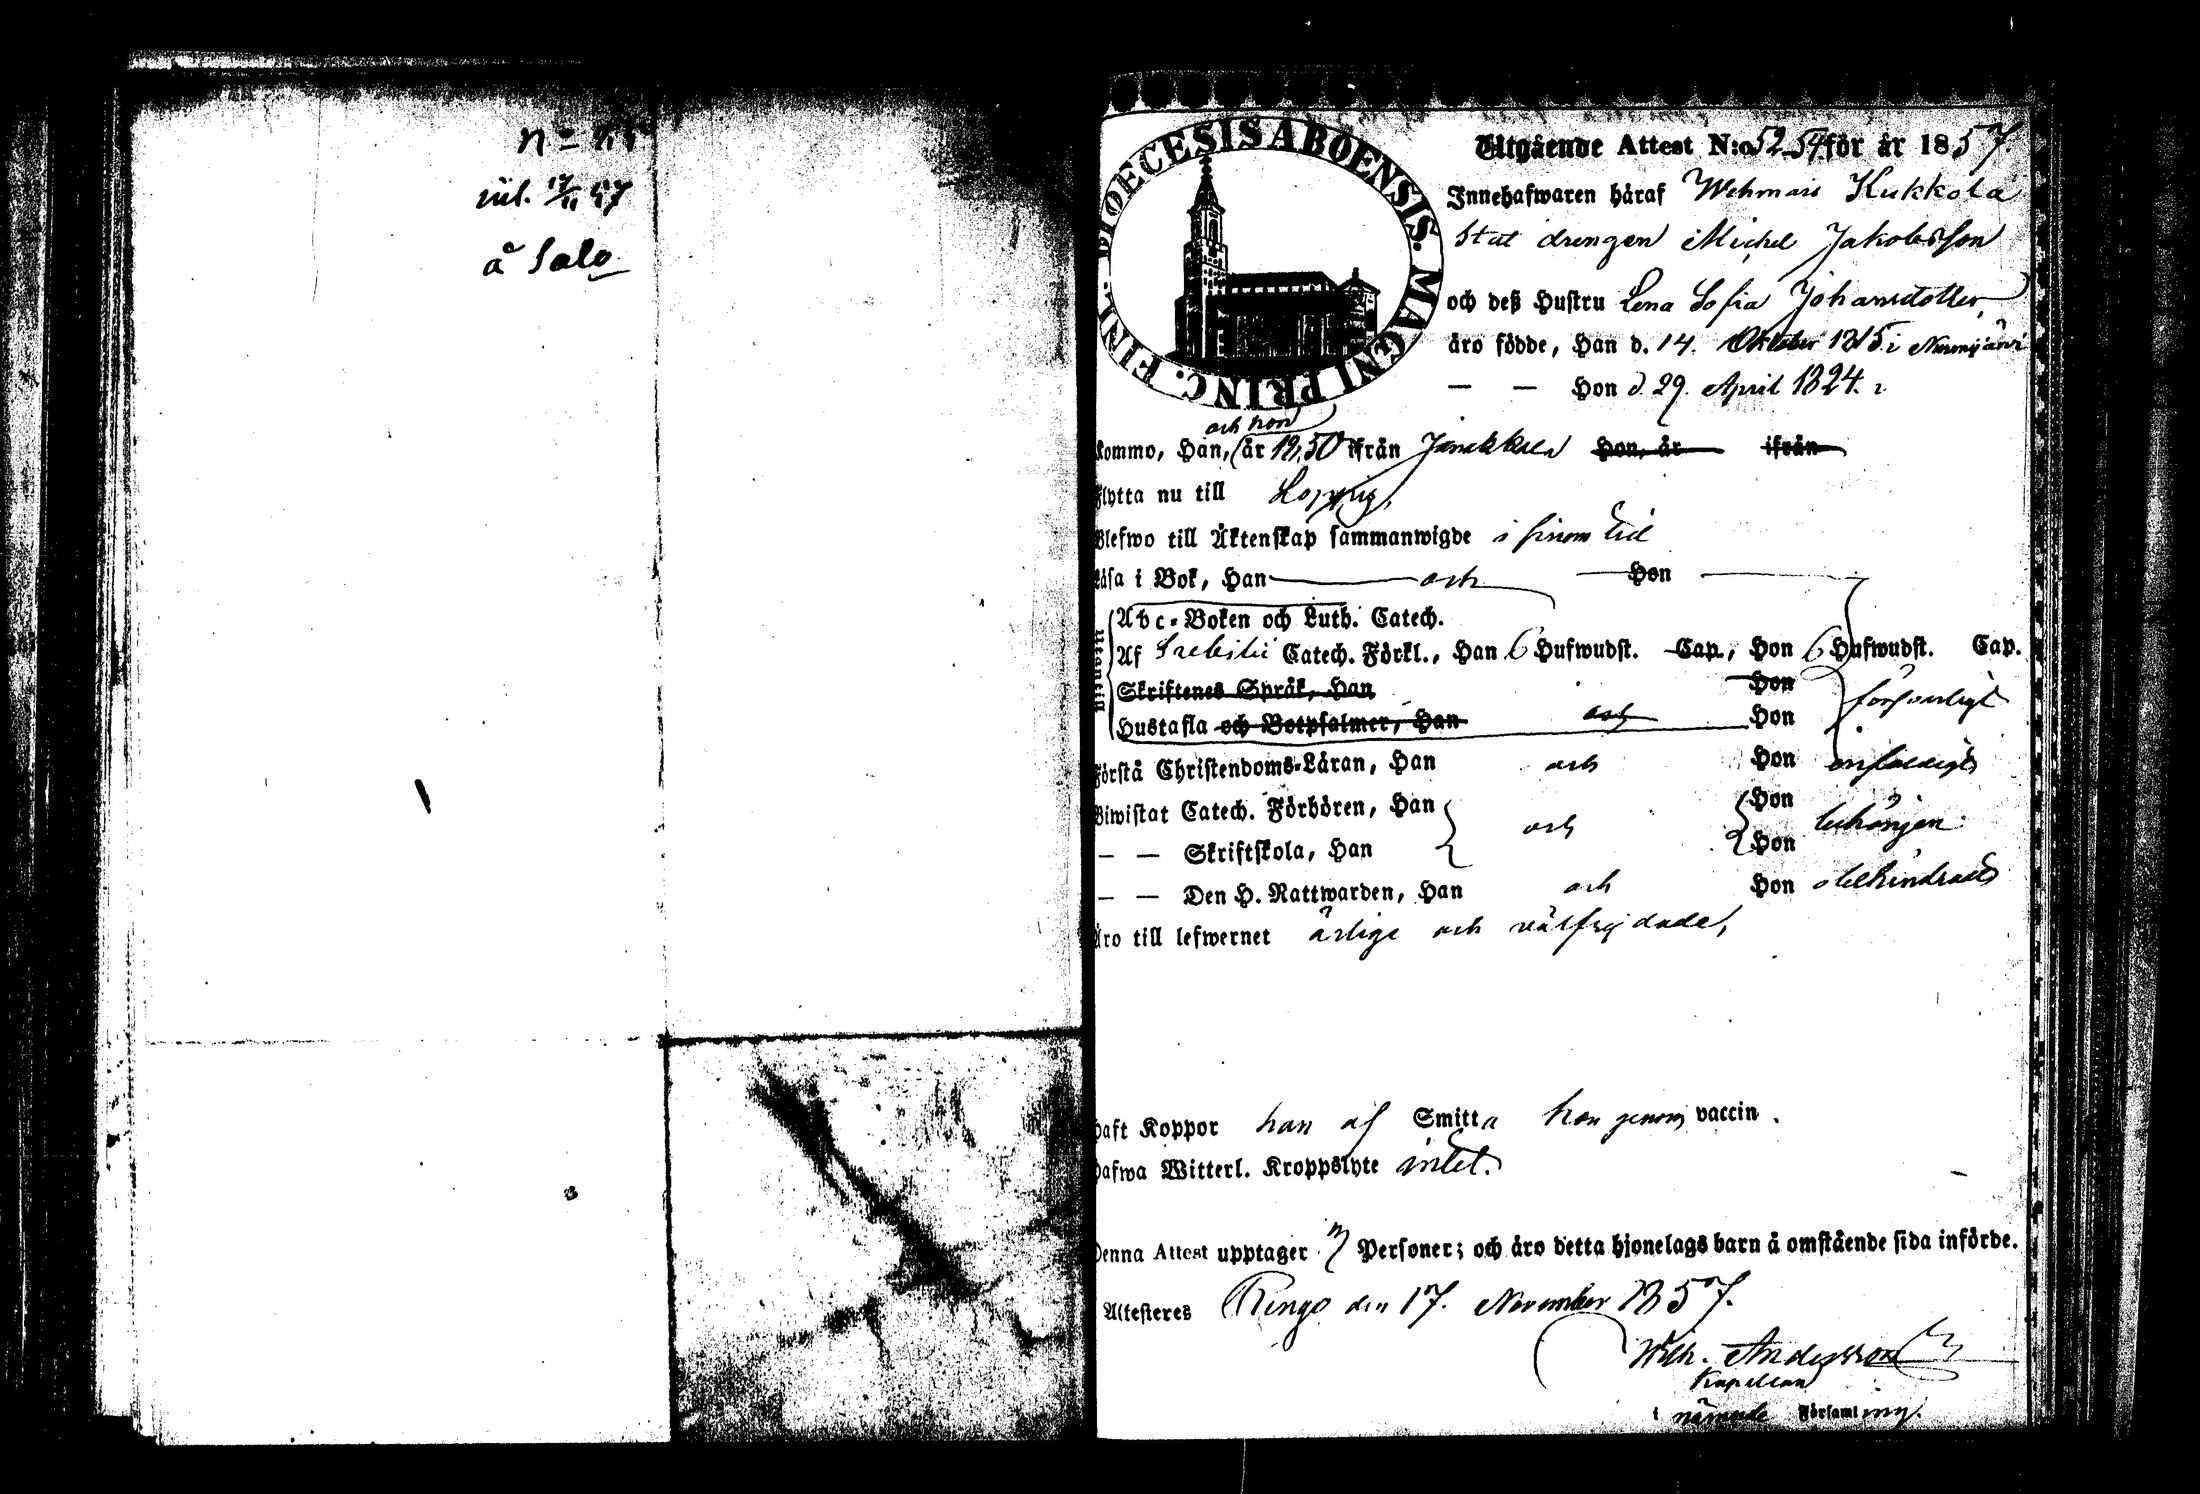 inl. 17/11 57
å Salo
DIOECESIS ABOENSIS. MAGNI PRINC. FINL.
Utgående Attest N:o 52 54 för år 1857.
Innehafwaren häraf Wehmais Kukkola
Stat drengen Michel Jakobsson
och deß Hustru Lena Sofia Johansdotter,
äro födde, Han d. 14. Oktober 1815 i Nurmijärvi
— — Hon d. 29. April 1824. i
och hon
kommo, Han, år 1850 ifrån Janakkala Hon, år ifrån
flytta nu till Loppis,
Blefwo till Äktenskap sammanwigde i sinom tid
Läsa i Bok, Han och Hon
Utantill
Abc-Boken och Luth. Catech.
Af Svebilii Catech. Förkl., Han 6 Hufwudst. Cap., Hon 6 Hufwudst. Cap.
Skriftenes Språk, Han Hon
försvarligt
Hustafla och Botpsalmer, Han och Hon
Förstå Christendoms-Läran, Han och Hon enfaldigt
Biwistat Catech. Förhören, Han Hon
och behörigen
— — Skriftskola, Han Hon
— — Den H. Nattwarden, Han och Hon obehindrade
Äro till lefwernet ärliga och välfrejdade,
Haft Koppor han af Smitta hon genom vaccin.
Hafwa Witterl. Kroppslyte intet.
Denna Attest upptager Personer; och äro detta hjonelags barn å omstående sida införde.
Attesteres Rengo den 17. November 1857.
Wilh. Andersson
Kapellan
i nämnde Församling.